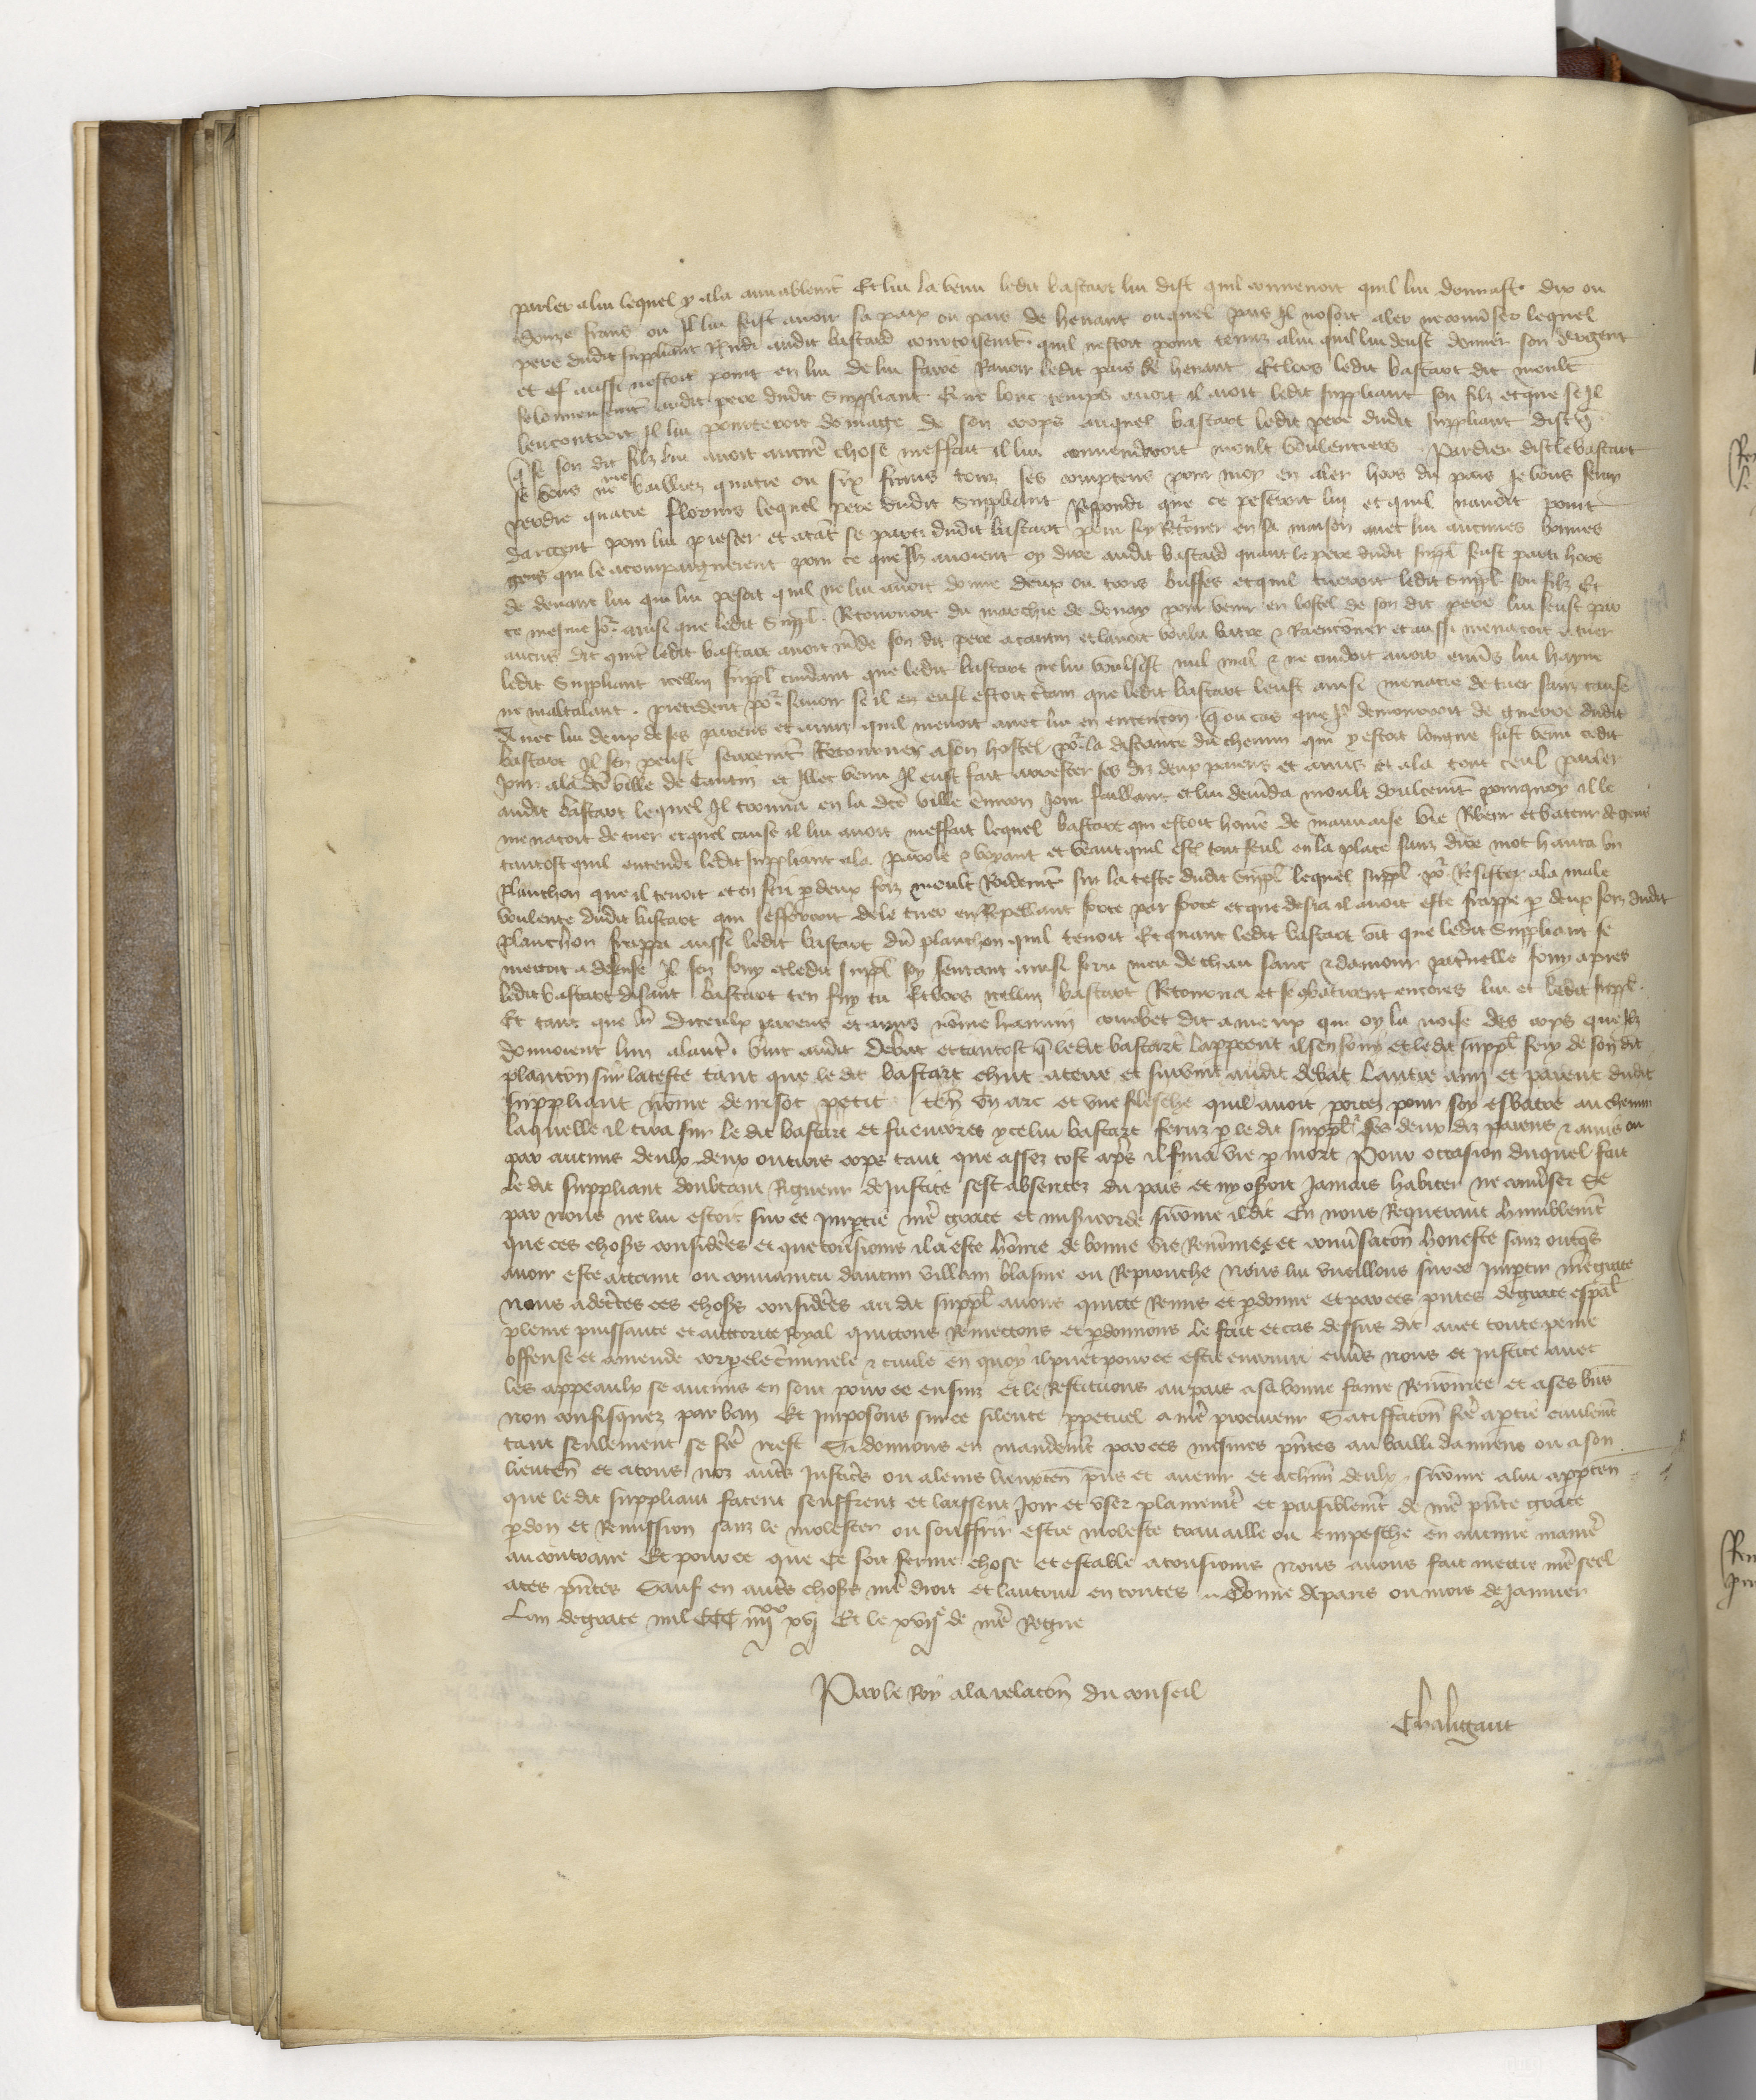 parler a lui lequel y ala amiablemt Et lui la venu ledit bastart lui dist quil convenoit quil lui donnast dix ou
douze frans ou Il lui feist avoir sa paix ou pais de henaut ouquel pais Il nosoit aler ne conuser lequel
pere dudit suppliant Rndi audit bastard courtoisemt quil nestoit point tenuz a lui quil lui deust donner son dargent
et aussi nestoit point en lui de lui faire Ravoir ledit pais de henaut Et lors ledit bastart dit moult
felonneusemt audit pere dudit Suppliant lonc temps avoit il avoit ledit suppliant son filz et que se Il
lencontroit Il lui porteroit domage de son corps auquel bastart ledit pere dudit suppliant dist
q se son dit filz lui avoit aucune chose meffait il lui amenderoit moult voulentiers Pardieu dist le bastart
se vous ne me bailliez quatre ou six frans touz ses comptens pour moy en aler hors du pais Je vous feray
perdre quatre florins lequel pere dudit Suppliant Respondi que ce pesoit lui et quil navoit point
dargent pour lui prester et atat se parti dudit bastart pour soy Retorner en sa maison avec lui aucunes bonnes
gens qui le acompaignerent pour ce que Ilz avoient oy dire audit bastard quant le pere dudit suppl fust parti hors
de devant lui qui lui pesoit quil ne lui avoit donne deux ou trois buffes et quil tueroit ledit suppl son filz Et
ce mesme Jor ainsi que ledit Suppl Retornoit du marchie de douay pour venir en lostel de son dit pere lui feust par
aucus dit que ledit bastart avoit mde son dit pere a cantin et lavoit volu batre & Raenconner et aussi menacoit a tuer
ledit Suppliant icellui suppl cuidant que ledit bastart ne lui voulsist nul mal & ne cuidoit avoir envs lui hayne
ne maltalant precedent por savoir se il en eust estoit ctain que ledit bastart leust ainsi menacie de tuer sanz cause
avec lui deux de ses parens et amis quil menoit avec lui en entencon q ou cas que Il demourroit de guerre dudit
bastart Il sen peust seuremt Retourner a son hostel por la distance du chemin qui y estoit longue fust venu cedit
Jour a la dce ville de Cantin et illec venu Il eust fait arrester ses diz deux parens et amis et ala tout seul parler
audit bastart lequel Il trouva en la dce ville environ Jour faillant et lui demda moult doulcemt pourquoy il le
menacoit de tuer et quel cause il lui avoit meffait lequel bastart qui estoit home de mauvaise vie Ribeur et bateur de gens
tantost quil entendi ledit suppliant ala parole & voyant et veant quil est tout seul en la place sanz dire mot hauca un
planchon que il tenoit et en feri p deux foiz moult Roidemt sur la teste dudit Suppl lequel suppl por Resister a la male
voulente dudit bastart qui sefforcoit de le tuer en Repellant force par force et que desia il avoit este frappe p deux foiz dudit
planchon frappa aussi ledit bastart dun planchon quil tenoit Et quant ledit bastart vit que ledit Suppliant se
mettoit a defense Il sen fouy et ledit suppl soy sentant ainsi feru meu de chau sanc & damour patnelle fouy apres
ledit bastart disant bastart ten fuy tu Et lors icellui bastart Retorna et se combatirent encores lui et ledit suppl
Et tant que lun diceulx parens et amis nome hannin courbet dit amerux qui oy la noise des cops que Ilz
donnoient lun alautre vint audit debat et tantost q le dit bastart lapperceut il sen fouy et le dit suppl fery de son dit
plancon sur la teste tant que le dit bastart chut a terre et survint audit debat lautre ami et parent dudit
suppliant nome denisot petit ten un arc et une flesche quil avoit portez pour soy esbatre au chemin
laquelle il tira sur le dit bastart et fu encores ycelui bastart feruz p le dit suppl ses deux diz parens & amis ou
par aucuns deulx deux ou trois cops tant que assez tost aps il fina vie p mort Pour occasion duquel fait
le dit suppliant doubtant Rigueur de Justice sest absentez du pais et ny oseroit Jamais habiter ne conuser Se
par nous ne lui estoit sur ce Impetie nre grace et misicorde sicomme il dit En nous Requerant humblemt
que ces choses considerees et que tousiours il a este home de bonne vie Renomee et convsacon honeste sanz oncqs
avoir este attaint ou convaincu daucun villain blasme ou Reprouche Nous lui vueillons sur ce Impartir nre grace
Nous adectes ces choses considerees au dit suppl avons quicte Remis et pdonne et par ces pntes de grace espal
pleine puissance et auctorite Royal quictons Remettons et pdonnons le fait et cas dessus dit avec toute peine
offense et amende corporele criminele & civile en quoy il puet pour ce estre encouru envs nous et justice avec
les appeaulx se aucuns en sont pour ce ensuiz et le Restituons au pais a sa bonne fame Renomee et a ses bns
non confisquez par ban Et Imposons sur ce silence ppetuel a nre procureur Satiffacon fce a partie civilemt
tant seulement se fce nest Si donnons en mandemt par ces mesmes pntes au bailli damiens ou a son
lieuten et a tous noz autres Justiciers ou a leurs lieuxten pns et avenir et a chun deulx sicomme a lui appten
que le dit suppliant facent seuffrent et laissent Joir et user plainemt et paisiblemt de nre pnte grace
pdon et Remission sanz le molester ou souffrir estre moleste travaille ou empesche en aucune maniere
au contraire Et pour ce que Ce soit ferme chose et estable a tousiours Nous avons fait mettre nre seel
a ces pntes Sauf en autres choses nre droit et lautrui en toutes Donne a paris ou mois de Janvier
Lan de grace mil CCC iiijxx xvj Et le xvije de nre Regne
Par le Roy a la relacon du conseil
Chaligaut